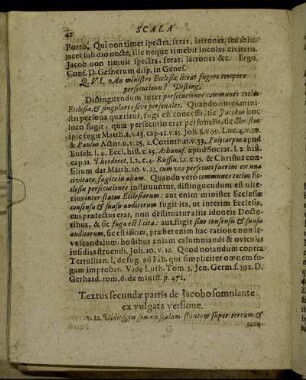 42 SCALA
Porro, Qui non timet spectra, feras, latrones, sed solus
jacet sub dio nocte, ille neque timebit incolas civitatis.
Jacob non timuit spectra, feras, latrones &c. Ergo.
Conf. D. Gesnerum disp. in Genes.
Q. VI. An ministro Ecclesiæ liceat fugere tempore
persecutionis? Disting.
Distinguendum inter persecutiones communes totius
Ecclesiæ, & singulares, sive personales. Quando enim mini-
stri persona quæritur, fuga est concessa, sic Jacobus hoc
loco fugit, qua persecutio erat personalis: sic & Christus
fugit Matth. 2. v. 13. cap. 12. v. 15. Joh. 8. v. 59. Luc. 4. v. 30.
& Paulus Actor. 9. v. 25. 2. Corinth. 11. v. 33. Polycarpus apud
Euseb. l. 4. Eccl. hist. c. 15. Athanas. apud Socrat. l. 2. hist.
cap. Theodoret. l. 2. c. 4. Ruffin. l. 1. c. 18. & Christus con-
silium dat Matth. 10. v. 23. cum vos persecuti fuerint in una
civitate, fugite in aliam. Quando vero communes totius Ec-
clesiæ persecutiones instituuntur, distinguendum est ulte-
rius inter statum Ecclesiarum: aut enim minister Ecclesiæ
consensu & suasu auditorum fugit ita, ut enim interim Ecclesia,
cui præfectus erat, non destituatur aliis idoneis Docto-
ribus, & sic fuga est licita: aut fugit sine consensu & suasu
auditorum, sic est illicita, præbet enim hac ratione non le-
ve scandalum, hostibus aniam calumniandi & oves ip-
sius destruendi, Joh. 10, v. 12. Quod notandum contra
Tertullian. l. de fug. ad Fab. qui simpliciter omnem fu-
gam improbat. Vide Luth. Tom. 2. Jen. Germ. f. 392. D.
Gerhard. tom. 6. de minist. p. 471.
Textus secundæ partis de Jacobo somniante
ex vulgata versione.
v. 12. Viditque in somnis scalam stantem super terram &